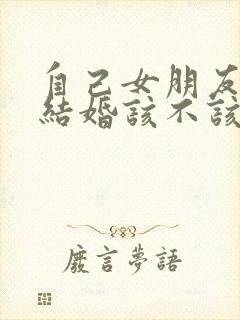 自己女朋友
結婚該不該
廢言夢語